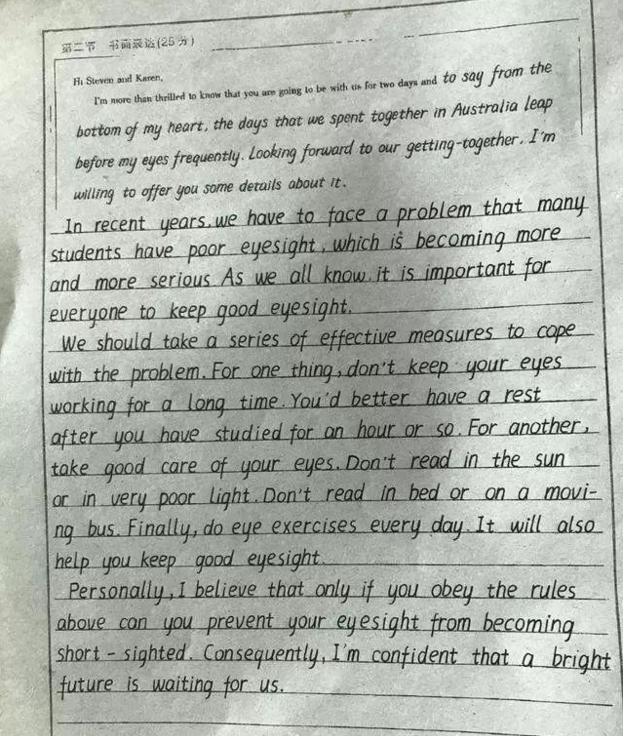 第二节 书面表达(25分)
Hi Steven and Karen,
I'm more than thrilled to know that you are going to be with us for two days and to say from the
bottom of my heart, the days that we spent together in Australia leap
before my eyes frequently. Looking forward to our getting-together, I'm
willing to offer you some details about it.
In recent years, we have to face a problem that many
students have poor eyesight, which is becoming more
and more serious. As we all know, it is important for
everyone to keep good eyesight.
We should take a series of effective measures to cope
with the problem. For one thing, don't keep your eyes
working for a long time. You'd better have a rest
after you have studied for an hour or so. For another,
take good care of your eyes. Don't read in the sun
or in very poor light. Don't read in bed or on a movi-
ng bus. Finally, do eye exercises every day. It will also
help you keep good eyesight.
Personally, I believe that only if you obey the rules
above can you prevent your eyesight from becoming
short-sighted. Consequently, I'm confident that a bright
future is waiting for us.